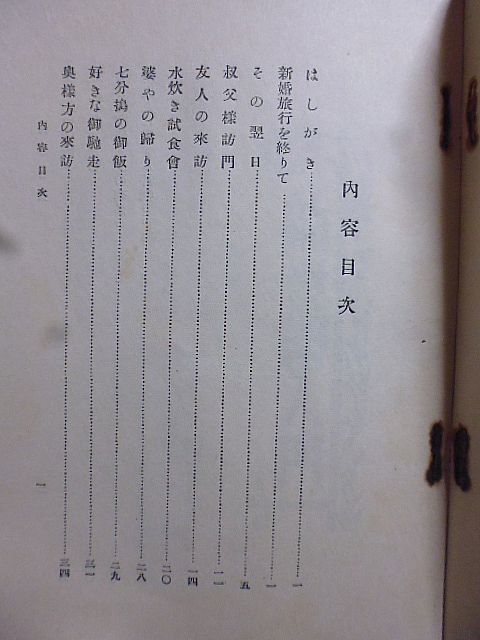 內容目次
はしがき……一
新婚旅行を終りて……一
その翌日……五
叔父樣訪問……一一
友人の來訪……一四
水炊き試食會……二〇
婆やの歸り……二八
七分搗の御飯……二九
好きな御馳走……三一
奥樣方の來訪……三四
內容目次
一